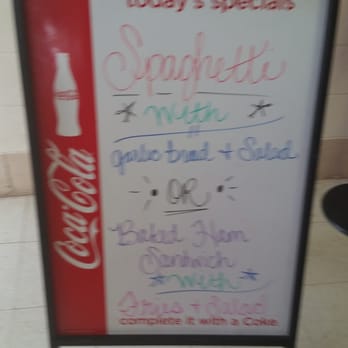 today's specials
Spaghetti
* With *
garlic bread + Salad
OR
Baked Ham
Sandwich
* With *
Fries + Salad
complete it with a Coke.
Coca-Cola